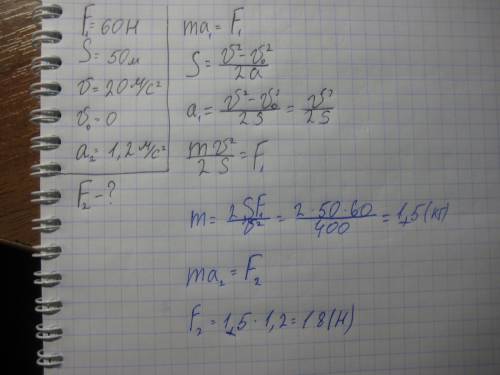 F₁ = 60 Н
S = 50 м
v = 20 м/с²
v₀ = 0
a₂ = 1,2 м/с²
F₂ - ?
ma₁ = F₁
S = (v² - v₀²)/2a
a₁ = (v² - v₀²)/2S = v²/2S
mv²/2S = F₁
m = 2SF₁/v² = 2·50·60/400 = 1,5 (кг)
ma₂ = F₂
F₂ = 1,5 · 1,2 = 18 (Н)